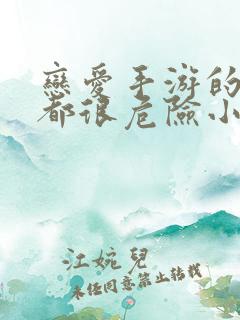 戀愛手游的
都很危險小
江婉兒
未经同意禁止转载